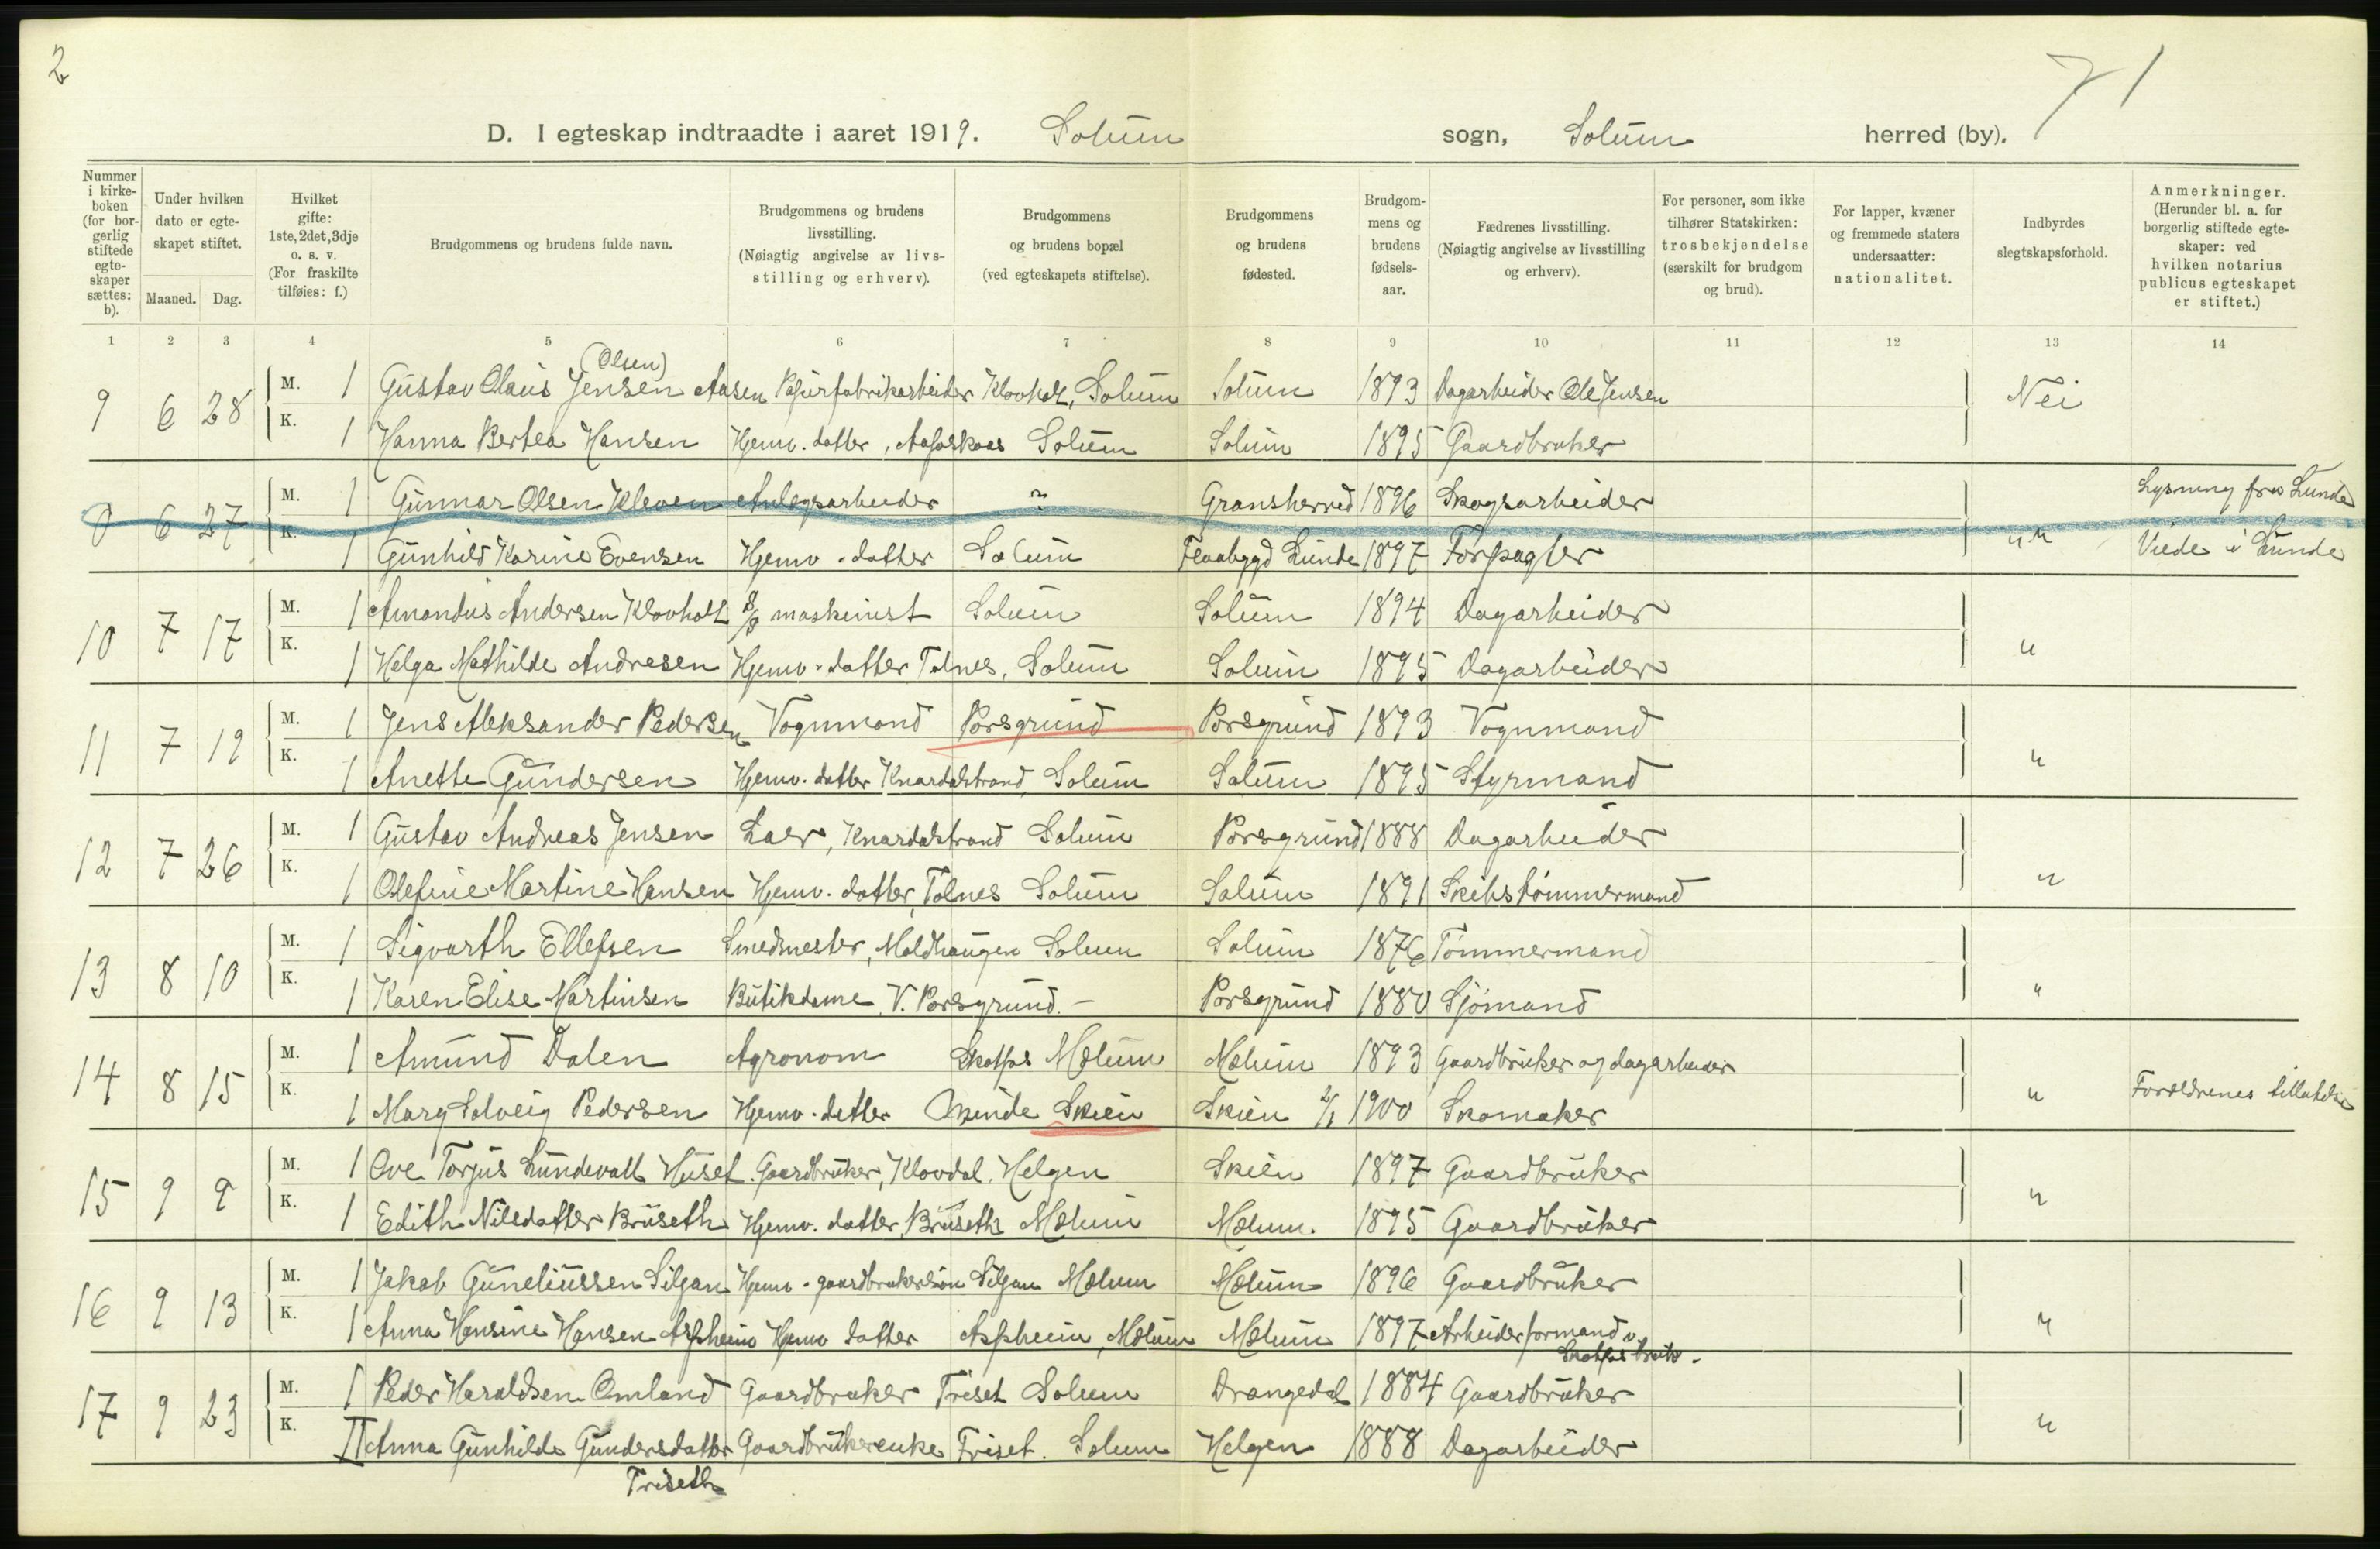 2
71
D. I egteskap indtraadte i aaret 1919. Solum sogn, Solum herred (by).
Nummer i kirkeboken (for borgerlig stiftede egteskaper sættes: b).
Under hvilken dato er egteskapet stiftet.
Maaned. Dag.
Hvilket gifte: 1ste, 2det, 3dje o. s. v. (For fraskilte tilføies: f.)
Brudgommens og brudens fulde navn.
Brudgommens og brudens livsstilling. (Nøiagtig angivelse av livsstilling og erhverv).
Brudgommens og brudens bopæl (ved egteskapets stiftelse).
Brudgommens og brudens fødested.
Brudgommens og brudens fødselsaar.
Fædrenes livsstilling. (Nøiagtig angivelse av livsstilling og erhverv).
For personer, som ikke tilhører Statskirken: trosbekjendelse (særskilt for brudgom og brud).
For lapper, kvæner og fremmede staters undersaatter: nationalitet.
Indbyrdes slegtskapsforhold.
Anmerkninger. (Herunder bl. a. for borgerlig stiftede egteskaper: ved hvilken notarius publicus egteskapet er stiftet.)
1 2 3 4 5 6 7 8 9 10 11 12 13 14
(Olsen)
9 6 28 M. 1 Gustav Olaus Jensen Aasen Papirfabrikarbeider Klovholt, Solum Solum 1893 Dagarbeider Ole Jensen Nei
K. 1 Hanna Bertea Hansen Hjemv. datter, Aafoskaas Solum Solum 1895 Gaardbruker
0 6 27 M. 1 Gunnar Olsen Kleven Anlegsarbeider ? Gransherred 1896 Skogsarbeider " " Lysning fra Lunde
K. 1 Gunhild Karine Evensen Hjemv. datter Solum Flaabygd Lunde 1897 Forpagter Viede i Lunde
10 7 17 M. 1 Amandus Andersen Klovholt D/S maskinist Solum Solum 1894 Dagarbeider "
K. 1 Helga Mathilde Andresen Hjemv. datter Tolnes, Solum Solum 1895 Dagarbeider
11 7 19 M. 1 Jens Aleksander Pedersen Vognmand Porsgrund Porsgrund 1893 Vognmand "
K. 1 Anette Gundersen Hjemv. datter Knardalstrand, Solum Solum 1895 Styrmand
12 7 26 M. 1 Gustav Andreas Jensen Laer, Knardalstrand Solum Porsgrund 1888 Dagarbeider "
K. 1 Olefine Martine Hansen Hjemv. datter, Tolnes Solum Solum 1891 Skibstømmermand
13 8 10 M. 1 Sigvarth Ellefsen Smedmester, Moldhaugen Solum Solum 1876 Tømmermand "
K. 1 Karen Elise Martinsen Butikdame V. Porsgrund. – Porsgrund 1880 Sjømand
14 8 15 M. 1 Amund Dalen Agronom Skotfos Mælum Mælum 1893 Gaardbruker og dagarbeider " Forældrenes tillatelse
K. 1 Mary Solveig Pedersen Hjemv. datter Skien Skien 2/1 1900 Skomaker
15 9 9 M. 1 Ove Torjus Lundevall Huset. Gaardbruker, Klovdal, Helgen Skien 1897 Gaardbruker "
K. 1 Edith Nilsdatter Bruseth Hjemv. datter, Bruseth Mælum Mælum. 1895 Gaardbruker
16 9 13 M. 1 Jakob Guneliussen Siljan Hjemv. gaardbrukersøn Siljan Mælum Mælum 1896 Gaardbruker "
K. 1 Anna Hansine Hansen Aspheim Hjemv datter Aspheim, Mælum Mælum 1897 Arbeiderformand v.
Skotfos bruk.
17 9 23 M. 1 Peder Haraldsen Omland Gaardbruker Friset Solum Drangedal 1884 Gaardbruker "
K. II Anna Gunhilde Gundersdatter Gaardbrukerenke Friset. Solum Helgen 1888 Dagarbeider
Friseth